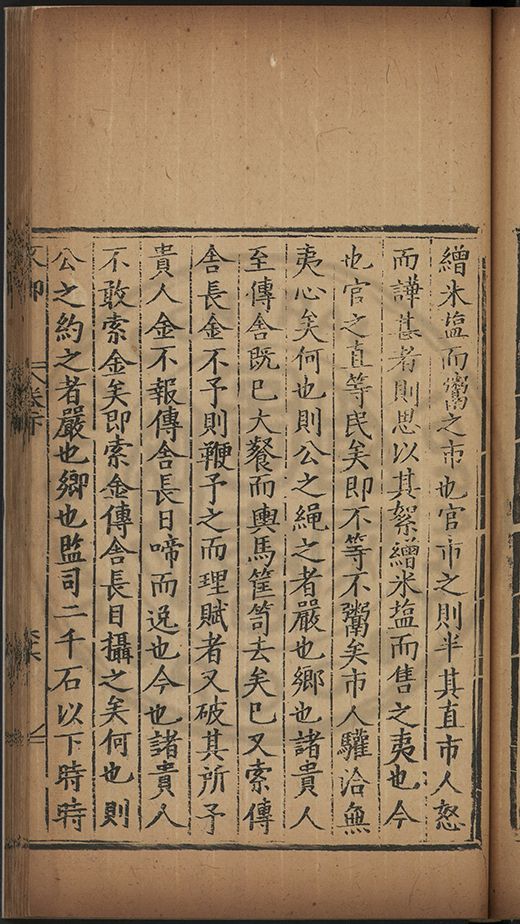 繒米塩而鬻之市也官市之則半其直市人怒
而譁甚者則思以其絮繒米塩而售之夷也今
也官之直等民矣即不等不鬻矣市人驩洽無
夷心矣何也則公之繩之者嚴也鄉也諸貴人
至傳舎既已大餐而輿馬筐笥去矣已又索傳
舎長金不予則鞭予之而理賦者又破其所予
貴人金不報傳舎長日啼而逃也今也諸貴人
不敢索金矣即索金傳舎長目攝之矣何也則
公之約之者嚴也鄉也監司二千石以下時時